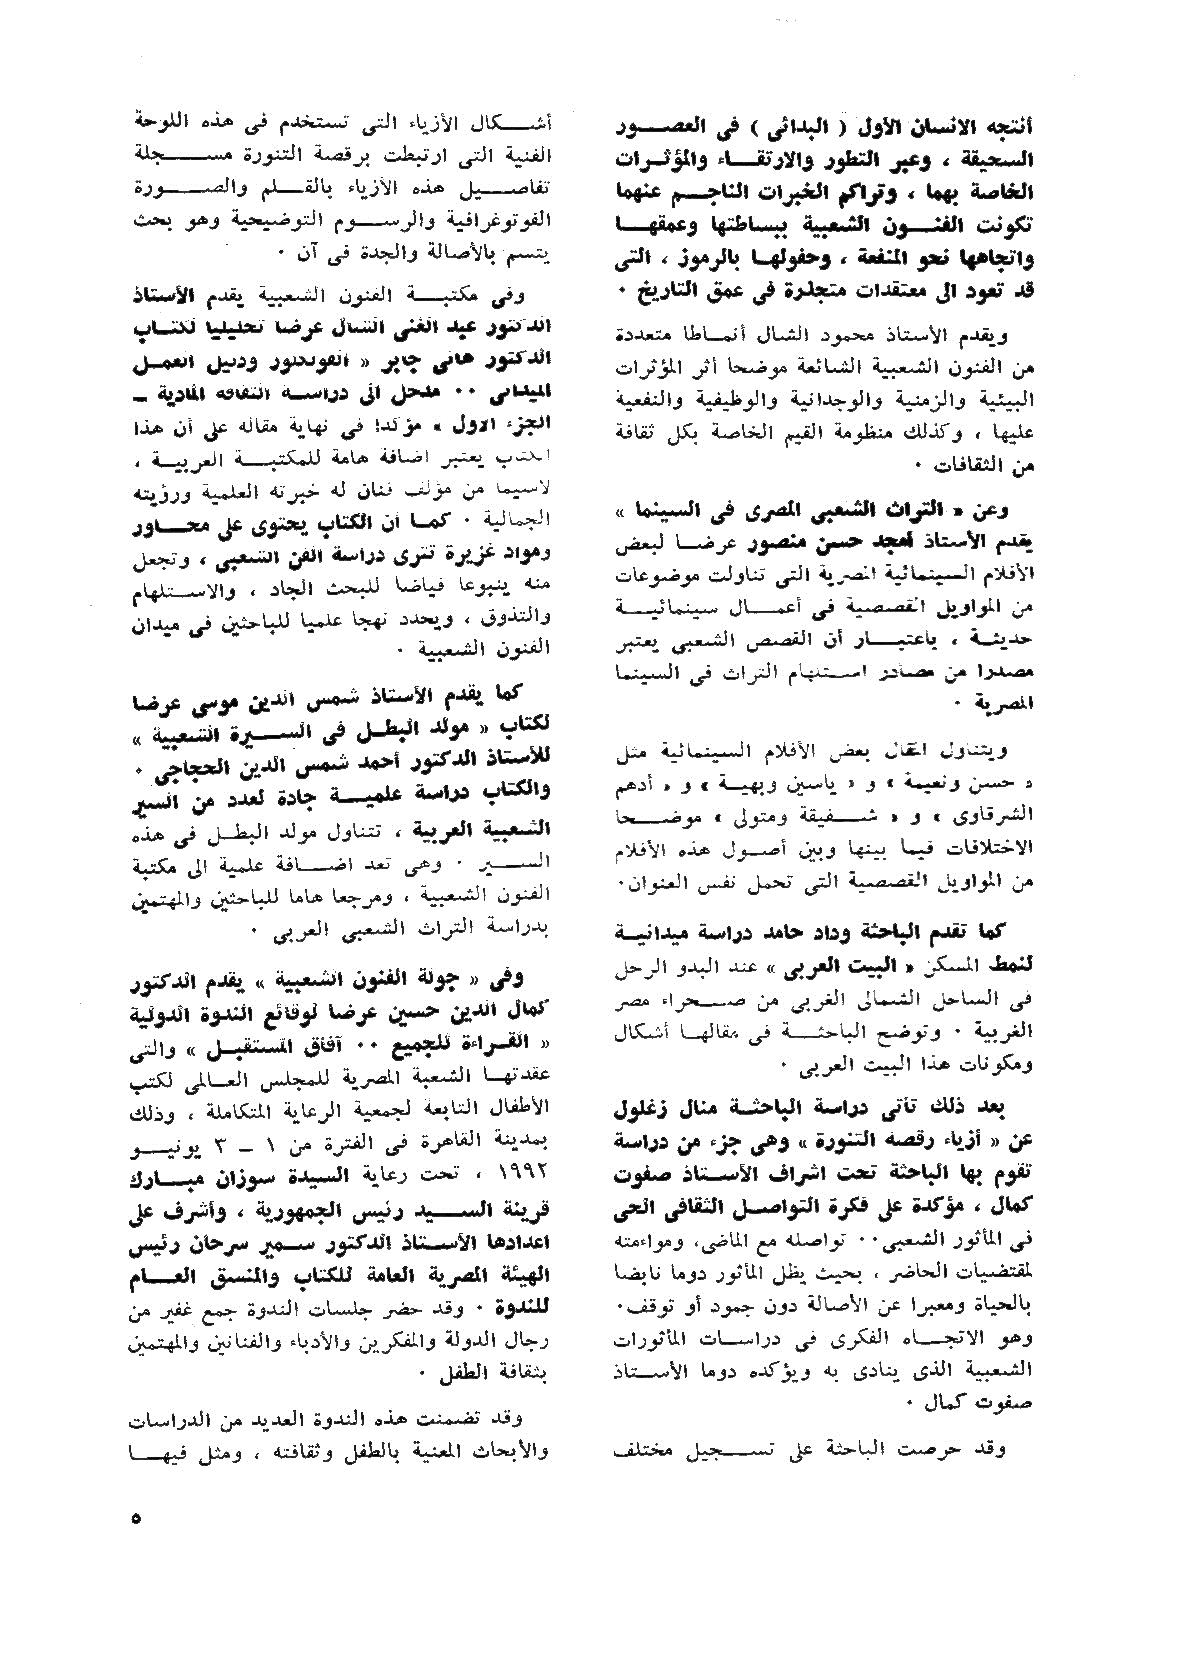 أنتجه الانسان الأول ( البدائى ) فى العصـــور
السحيقة ، وعبر التطور والارتقـــاء والمؤثـرات
الخاصة بهما ، وتراكم الخبرات الناجـــم عنهما
تكونت الفنـــون الشعبية ببساطتها وعمقهـــا
واتجاهها نحو المنفعة ، وحفولهـا بالرموز ، التى
قد تعود الى معتقدات متجذرة فى عمق التاريخ ٠
ويقدم الأستاذ محمود الشال أنمـاطا متعددة
من الفنون الشعبية الشائعة موضحا أثر المؤثرات
البيئية والزمنية والوجدانية والوظيفية والنفعية
عليها ، وكذلك منظومة القيم الخاصة بكل ثقافة
من الثقافات ٠
وعن « التراث الشعبى المصرى فى السينما »
يقدم الأستاذ أمجد حسن منصور عرضـا لبعض
الأفلام السـينمائية المصرية التى تناولت موضوعات
من المواويل القصصية فى أعمـــال سينمائيـــة
حديثـة ، باعتبـــار أن القصص الشعبى يعتبر
مصدرا من مصادر استلهام التراث فى السينما
المصرية ٠
ويتناول المقال بعض الأفلام السينمائية مثل
« حسن ونعيمة » و « ياسين وبهيـة » و « أدهم
الشرقاوى » و « شـــفيقة ومتولى » موضـــحا
الاختلافات فيما بينها وبين أصـول هذه الأفلام
من المواويل القصصية التى تحمل نفس العنوان٠
كما تقدم الباحثة وداد حامد دراسة ميدانيـة
لنمط المسكن « البيت العربى » عند البدو الرحل
فى الساحل الشمالى الغربى من صـــحراء مصر
الغربية ٠ وتوضح الباحثـــة فى مقالهـا أشكال
ومكونات هذا البيت العربى ٠
بعد ذلك تأتى دراسة الباحثـة منال زغلول
عن « أزياء رقصة التنورة » وهى جزء من دراسة
تقوم بها الباحثة تحت اشراف الأســتاذ صفوت
كمال ، مؤكدة على فكرة التواصـل الثقافى الحى
فى المأثور الشعبى٠٠ تواصله مع الماضى، ومواءمته
لمقتضيات الحاضر ، بحيث يظل المأثور دوما نابضا
بالحياة ومعبرا عن الأصالة دون جمود أو توقف٠
وهو الاتجـــاه الفكرى فى دراســات المأثورات
الشعبية الذى ينادى به ويؤكده دوما الأســتاذ
صفوت كمال ٠
وقد حرصت الباحثة على تســـجيل مختلف
أشـــكال الأزياء التى تستخدم فى هذه اللوحة
الفنية التى ارتبطت برقصة التنورة مســـجلة
تفاصـــيل هذه الأزياء بالقـــلم والصـــورة
الفوتوغرافية والرســـوم التوضيحية وهو بحث
يتسم بالأصالة والجدة فى آن ٠
وفى مكتبـــة الفنون الشعبية يقدم الأستاذ
الدكتور عبد الغنى الشال عرضا تحليليا لكتـاب
الدكتور هانى جابر « الفولكلور ودليل العمـل
الميدانى ٠٠ مدخل الى دراسـة الثقافة المادية ـ
الجزء الأول » مؤكدا فى نهاية مقاله على أن هذا
الكتاب يعتبر اضافة هامة للمكتبـــة العربيـــة ،
لاسيما من مؤلف فنان له خبرته العلمية ورؤيته
الجمالية ٠ كمـا أن الكتاب يحتوى على محـــاور
ومواد غزيرة تثرى دراسة الفن الشعبى ، وتجعل
منه ينبوعا فياضا للبحث الجاد ، والاســتلهام
والتذوق ، ويحدد نهجا علميا للباحثين فى ميدان
الفنون الشعبية ٠
كما يقدم الأستاذ شمس الدين موسى عرضا
لكتاب « مولد البطـل فى الســـيرة الشعبية »
للأستاذ الدكتور أحمد شمس الدين الحجاجى ٠
والكتاب دراسة علميـــة جادة لعدد من السير
الشعبية العربية ، تتناول مولد البطـل فى هذه
الســـير ٠ وهى تعد اضـــافة علمية الى مكتبة
الفنون الشعبية ، ومرجعا هاما للباحثين والمهتمين
بدراسة التراث الشعبى العربى ٠
وفى « جولة الفنون الشعبية » يقدم الدكتور
كمال الدين حسين عرضا لوقائع الندوة الدولية
« القـراءة للجميع ٠٠ آفاق المستقبـل » والتى
عقدتهـا الشعبة المصرية للمجلس العـالمى لكتب
الأطفال التابعة لجمعية الرعاية المتكاملة ، وذلك
بمدينة القاهرة فى الفترة من ١ ـ ٣ يونيـــو
١٩٩٢ ، تحت رعاية السيدة سوزان مبـــارك
قرينة الســـيد رئيس الجمهورية ، وأشرف على
اعدادها الأســتاذ الدكتور ســمير سرحان رئيس
الهيئة المصرية العامة للكتاب والمنسق العـــام
للندوة ٠ وقد حضر جلسات الندوة جمع غفير من
رجال الدولة والمفكرين والأدباء والفنانين والمهتمين
بثقافة الطفل ٠
وقد تضمنت هذه الندوة العديد من الدراسات
والأبحاث المعنية بالطفل وثقافته ، ومثل فيهـــا
٥